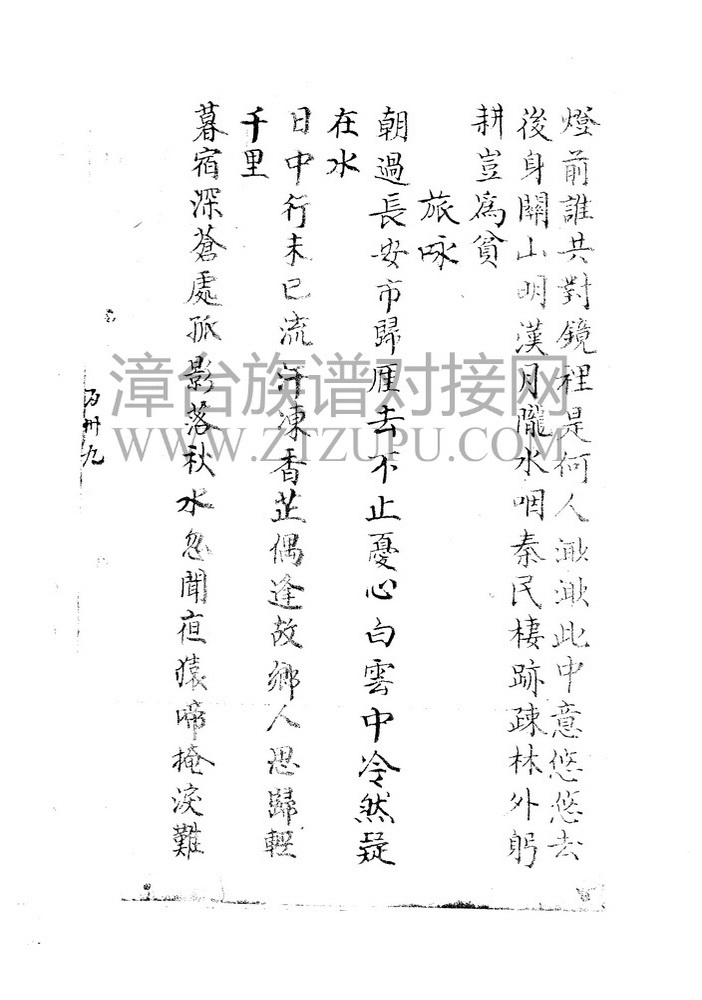 燈前誰共對鏡裡是何人漱漱此中意悠悠去
後身關山明漢月隴水咽秦民棲跡疎林外躬
耕豈為貧
旅咏
朝過長安市歸厓去不止憂心白雲中冷然疑
在水
日中行未已流汗凍香芷偶逢故鄉人思歸輕
千里
暮宿深蒼處孤影落秋水忽聞夜猿啼掩淚難
漳台族谱对接网
WWW.ZTZUPU.COM